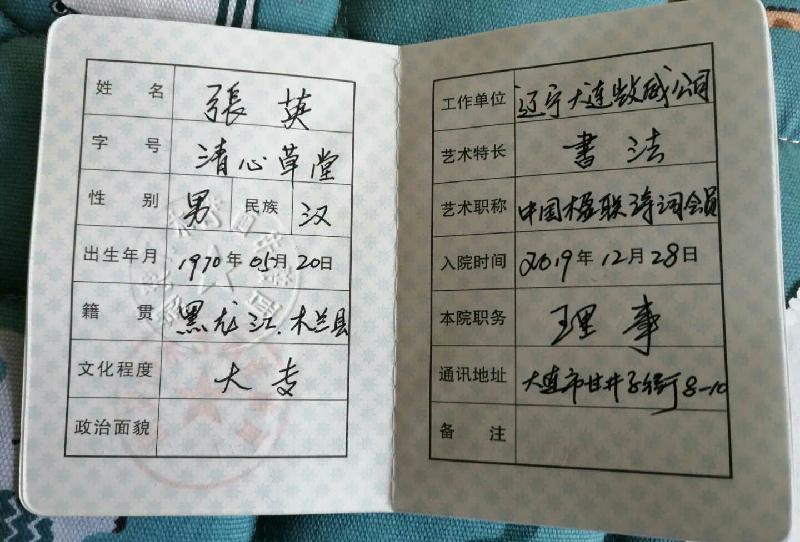 姓 名 張英
字 号 清心草堂
性 别 男 民族 汉
出生年月 1970年05月20日
籍 贯 黑龙江.木兰县
文化程度 大专
政治面貌
工作单位 辽宁大连 公司
艺术特长 書法
艺术职称 中国楹联诗词会员
入院时间 2019年12月28日
本院职务 理事
通讯地址 大连市甘井子街 8-10
备 注